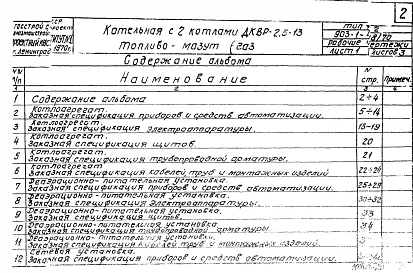 2
ГОССТРОЙ С
г. Ленинград
1970г.
Котельная с 2 котлами ДКВР-2,5-13
Топливо - мазут (газ
тип
903-1-
8/70
рабочие чертежи
лист 1
Содержание альбома
NN п/п
Наименование
N стр.
Примеч.
1 2 3 4
1 Содержание альбома 2÷4
2 Котлоагрегат.
Заказная спецификация приборов и средств автоматизации. 5÷14
3 Котлоагрегат.
Заказная спецификация электроаппаратуры. 15-19
4 Котлоагрегат.
Заказная спецификация щитов. 20
5 Котлоагрегат.
Заказная спецификация трубопроводной арматуры. 21
6 Котлоагрегат
Заказная спецификация кабелей труб и монтажных изделий 22÷26
7 Деаэрационно-питательная установка.
Заказная спецификация приборов и средств автоматизации. 25÷29
8 Деаэрационно-питательная установка.
Заказная спецификация электроаппаратуры. 30÷32
9 Деаэрационно-питательная установка.
Заказная спецификация щитов. 33
10 Деаэрационно-питательная установка.
Заказная спецификация трубопроводной арматуры. 34
11 Деаэрационно-питательная установка.
Заказная спецификация кабелей труб и монтажных изделий
12 Сетевая установка.
Заказная спецификация приборов и средств автоматизации.